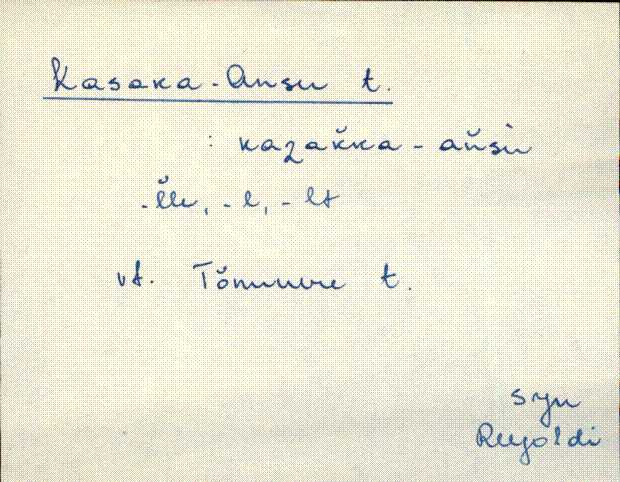 Kasaka-Ansu t.
: kazak̆ka - an̆si
-l̆le, -l, -lt
vt. Tõnumure t.
syn
Reegoldi